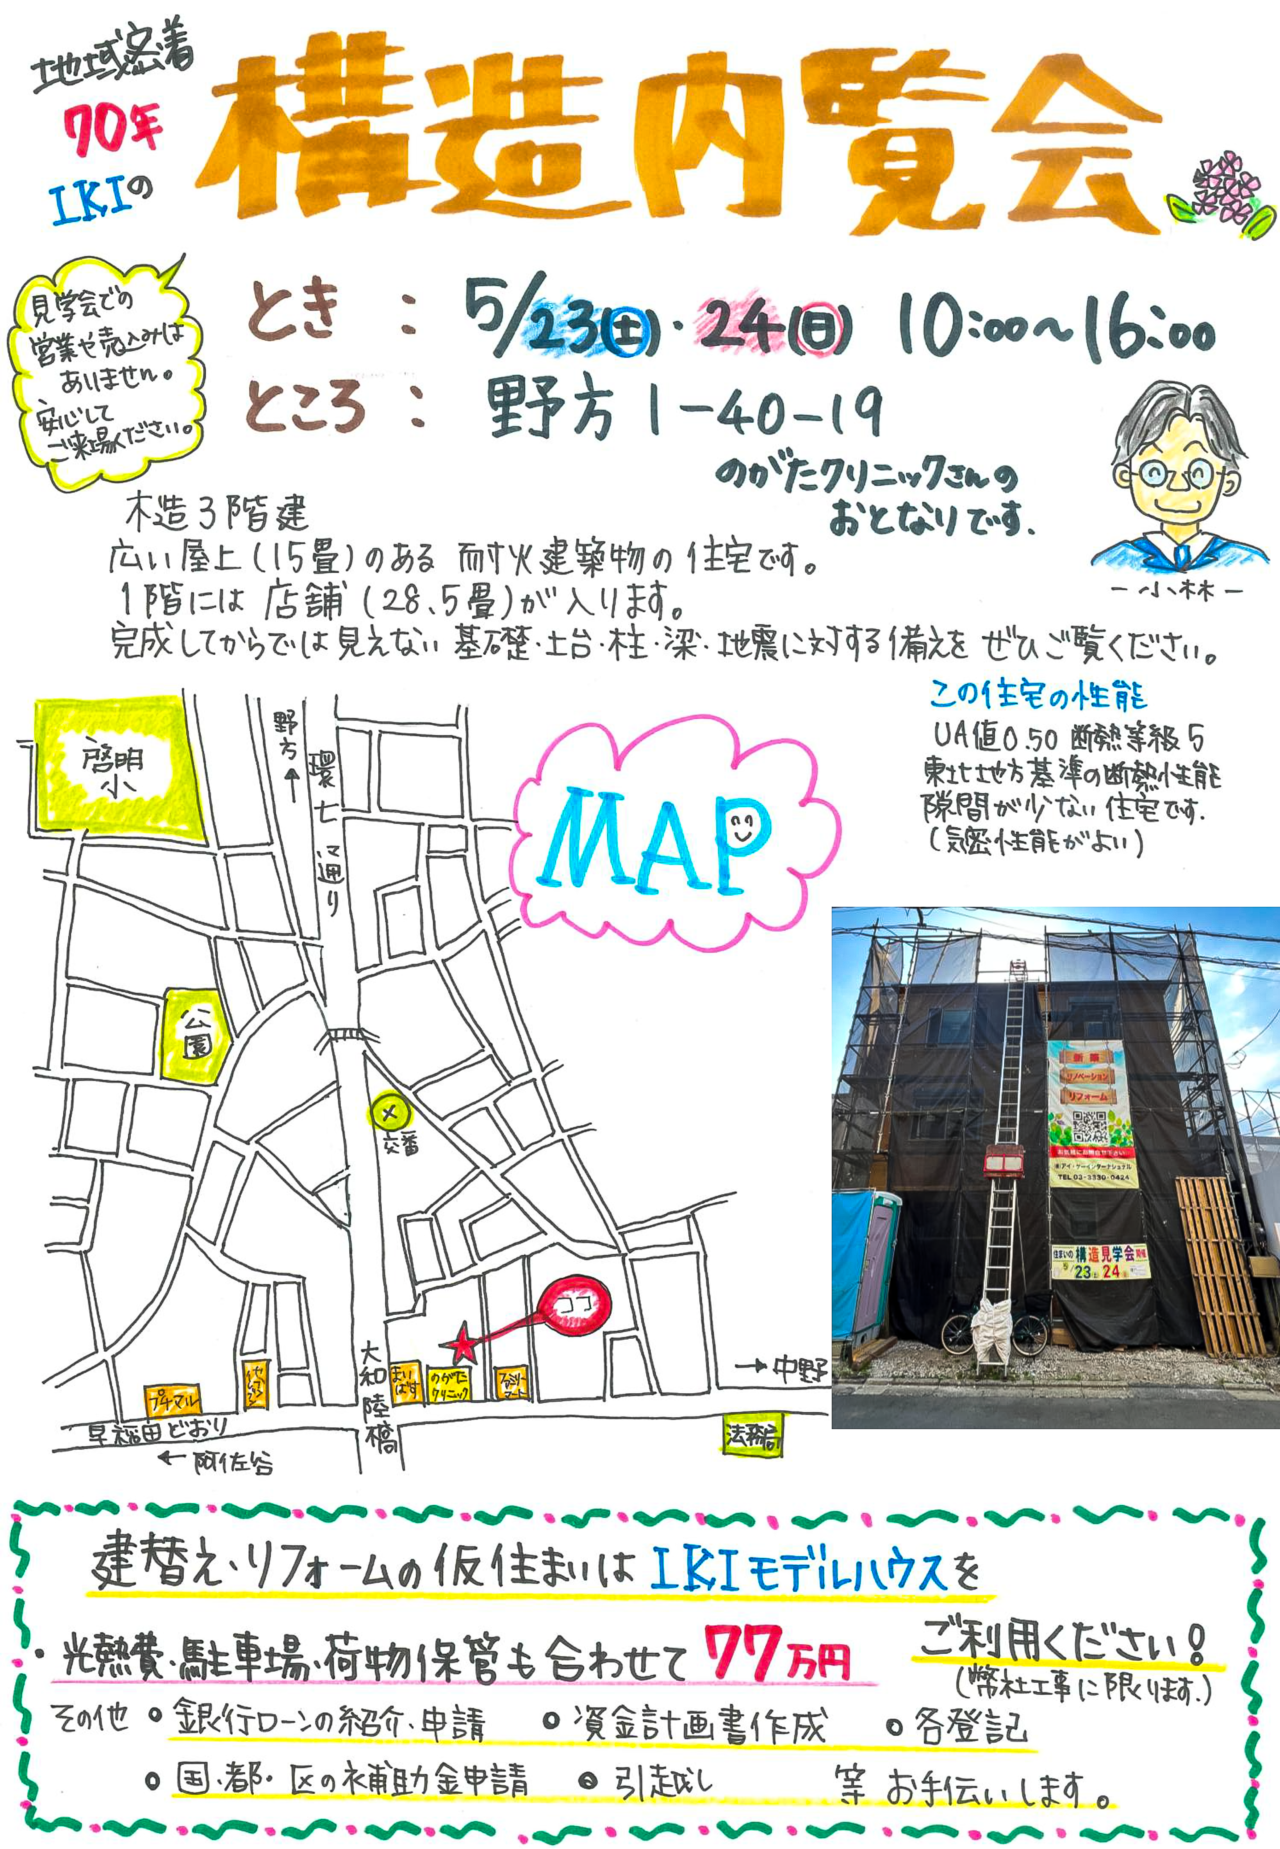 地域密着
70年
IKIの
構造内覧会
見学会での
営業や売込みは
ありません。
安心して
ご来場ください。
とき : 5/23(土)・24(日) 10:00~16:00
ところ : 野方1-40-19
のがたクリニックさんの
おとなりです.
-小林-
木造3階建
広い屋上(15畳)のある 耐火建築物の住宅です。
1階には 店舗 (28.5畳)が入ります。
完成してからでは見えない 基礎・土台・柱・梁・地震に対する備えを ぜひご覧ください。
この住宅の性能
UA値0.50 断熱等級5
東北地方基準の断熱性能
隙間が少ない住宅です.
(気密性能がよい)
啓明
小
野方
↑
環七通り
MAP
公園
交番
ココ
大和陸橋
まいばす
のがた
クリニック
ファミリー
マート
→中野
プチマル
早稲田どおり
← 阿佐谷
法務局
新築
リノベーション
リフォーム
お気軽にお問合せ下さい
㈱アイ・ケーインターナショナル
TEL 03-3330-0424
住まいの構造見学会開催
5/23土24日
建替え・リフォームの仮住まいは IKIモデルハウスを
ご利用ください!
・光熱費・駐車場・荷物保管も合わせて 77万円
(弊社工事に限ります.)
その他 ○ 銀行ローンの紹介・申請 ○ 資金計画書作成 ○ 各登記
○ 国・都・区の補助金申請 ○ 引越し 等 お手伝いします。